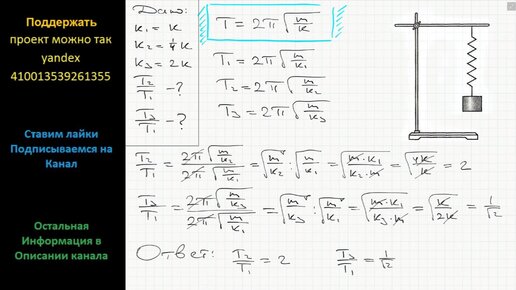 Поддержать
проект можно так
yandex
410013539261355
Ставим лайки
Подписываемся на
Канал
Остальная
Информация в
Описании канала
Дано:
K₁ = K
K₂ = ¼K
K₃ = 2K
T₂/T₁ - ?
T₃/T₁ - ?
T = 2π√(m/K)
T₁ = 2π√(m/K₁)
T₂ = 2π√(m/K₂)
T₃ = 2π√(m/K₃)
T₂/T₁ = 2π√(m/K₂) / 2π√(m/K₁) = √(m/K₂) : √(m/K₁) = √(m·K₁/K₂·m) = √(4K/K) = 2
T₃/T₁ = 2π√(m/K₃) / 2π√(m/K₁) = √(m/K₃) : √(m/K₁) = √(m·K₁/K₃·m) = √(K/2K) = 1/√2
Ответ: T₂/T₁ = 2 T₃/T₁ = 1/√2